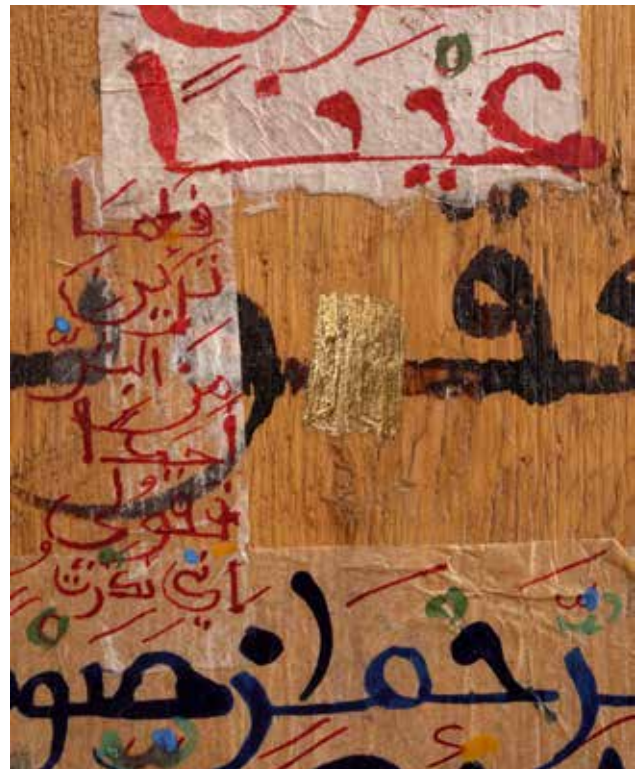 عَيْنًا
فَإِمَّا
تَرَيِنَّ
مِنَ البَشَرِ
أَحَدًا
فَقُولِي
إِنِّي نَذَرْتُ
رَّحْمَٰنِ صَوْ